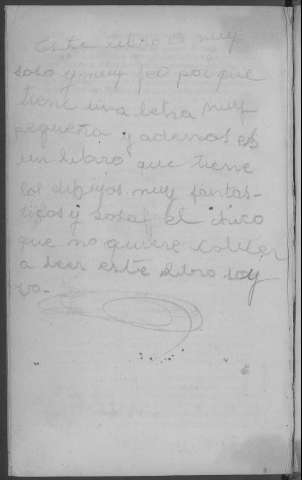 Este libro es muy
soso y muy feo porque
tiene una letra muy
pequeña y ademas es
un libro que tiene
los dibujos muy fantas-
ticos y sosos el chico
que no quiere volver
a leer este libro soy
yo.-